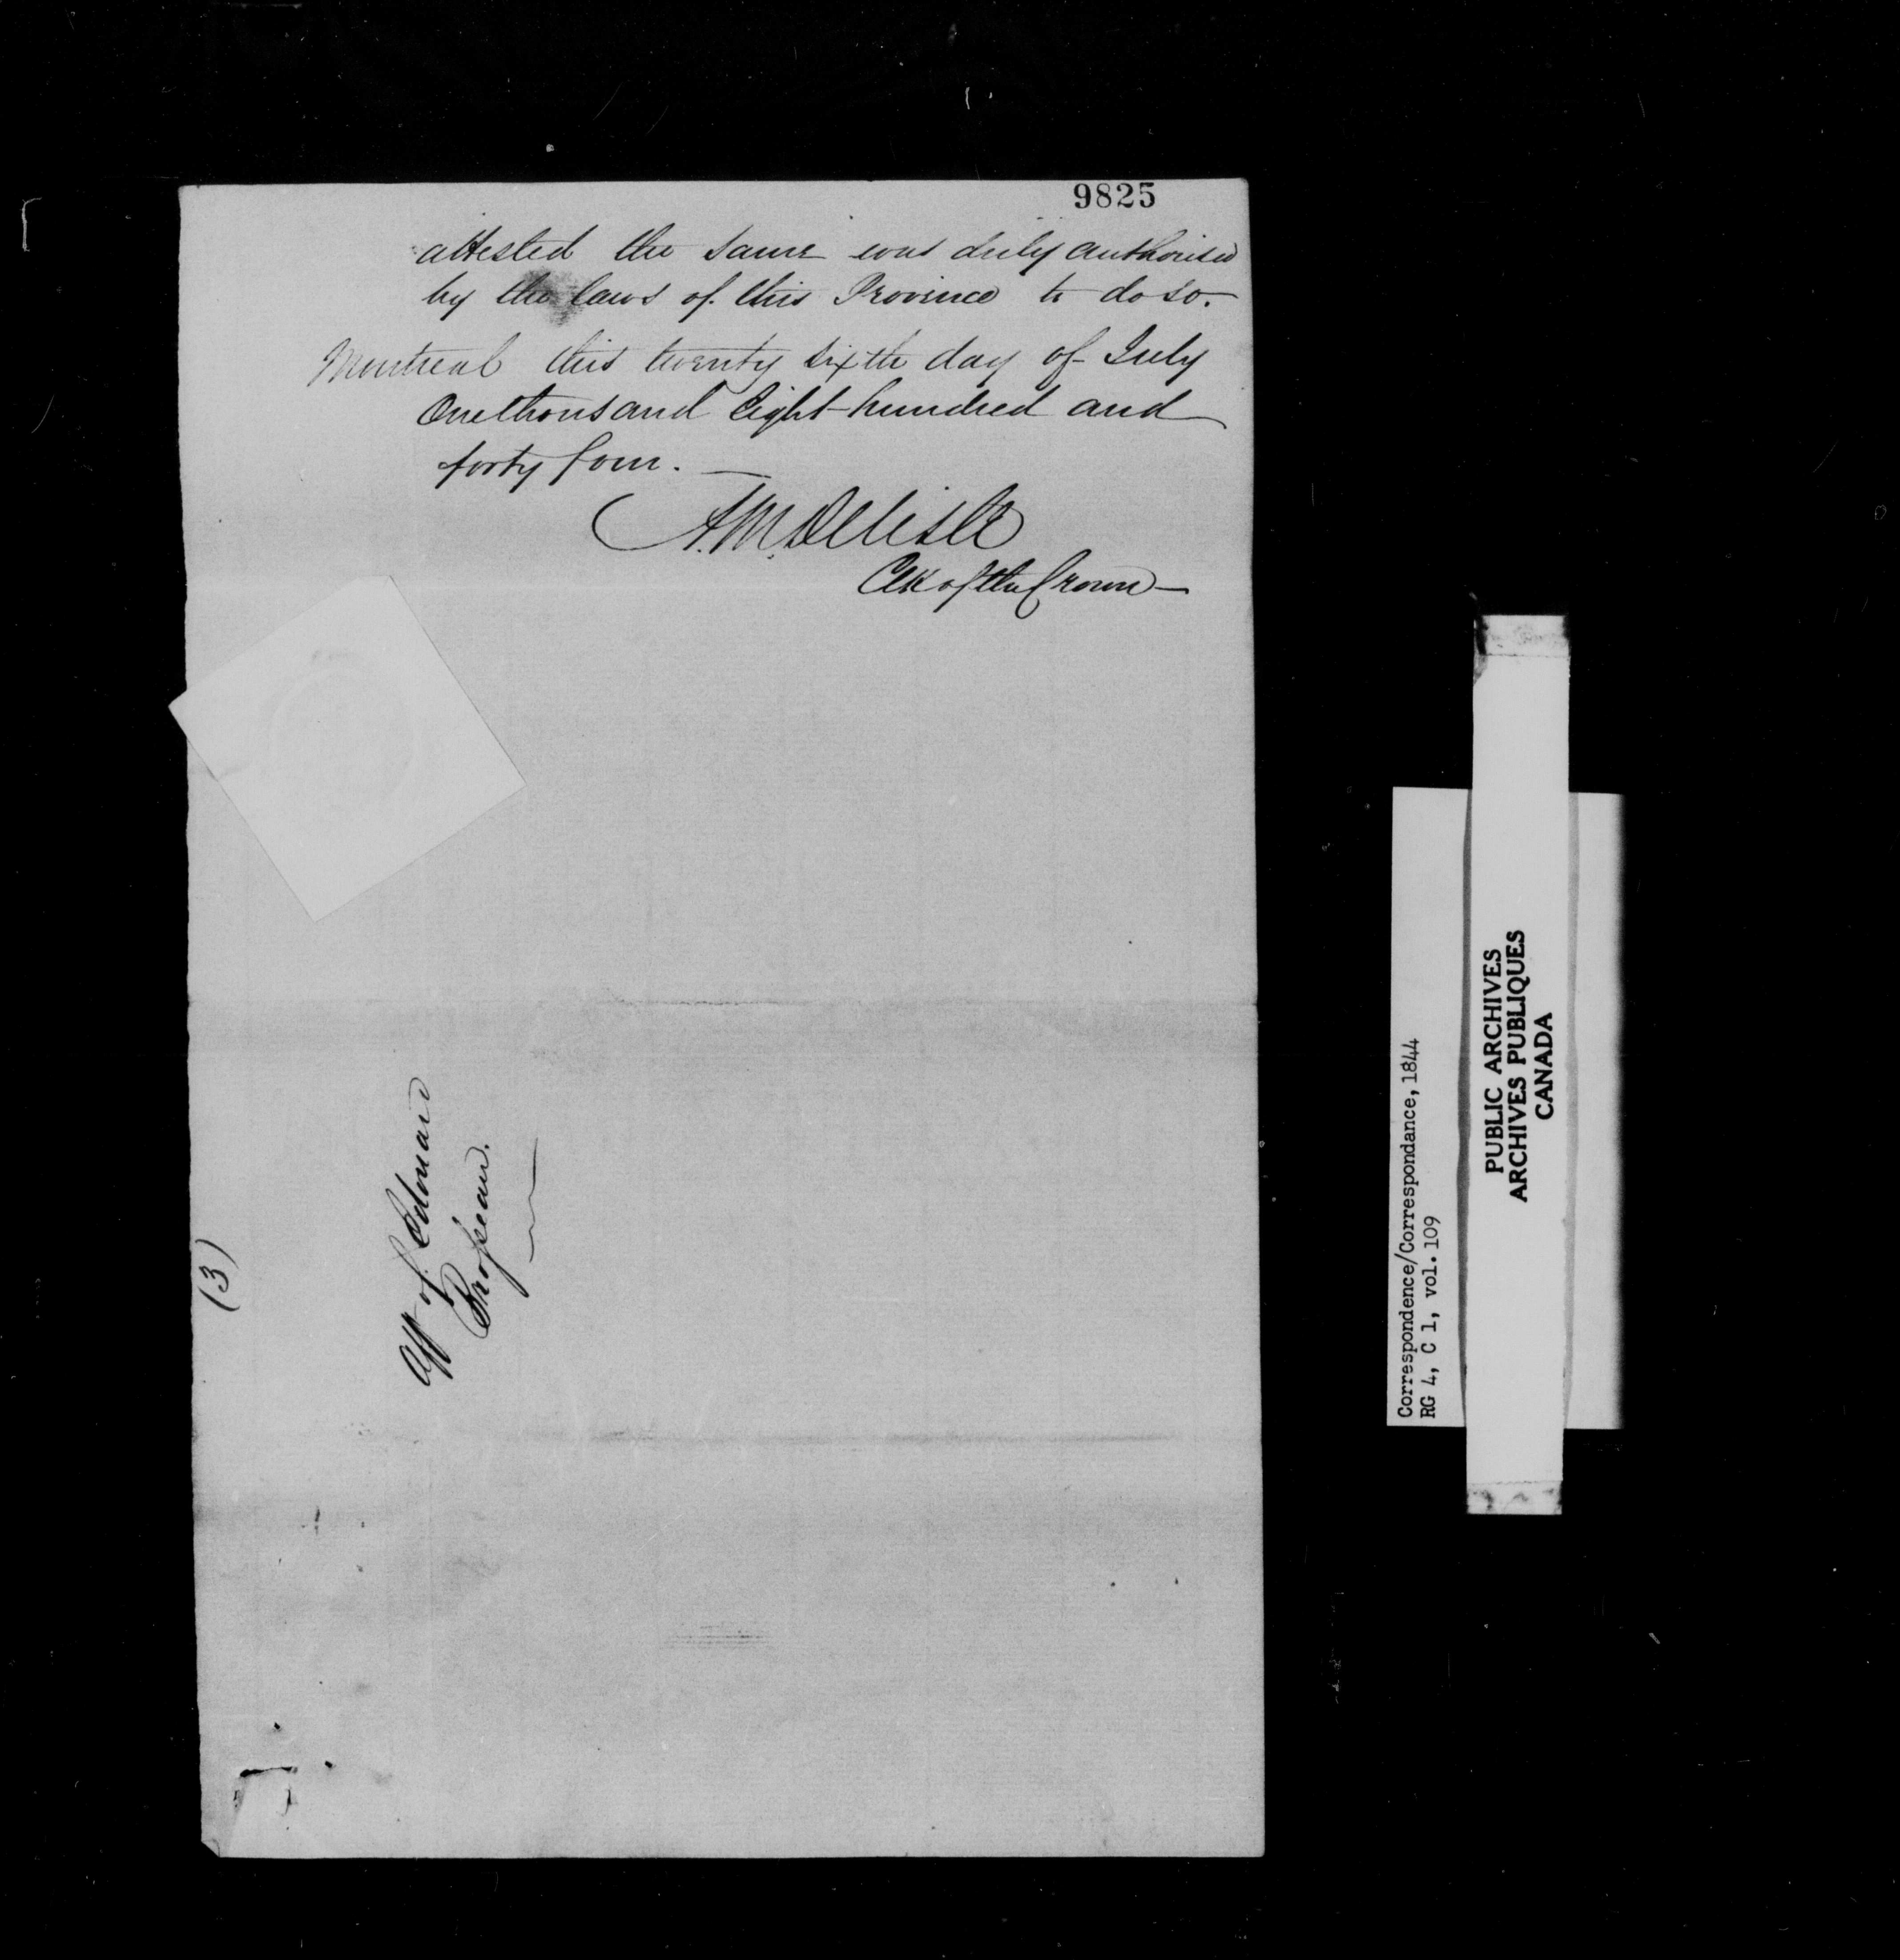 9825
attested the same was duly authorised
by the laws of this Province to do so.
Montreal this twenty sixth day of July
One thousand Eight hundred and
forty four.
A. M. Delisle
Clk of the Crown
(3)
Aff of Edouard
Correspondence/Correspondance, 1844
RG 4, C 1, vol. 109
PUBLIC ARCHIVES
ARCHIVES PUBLIQUES
CANADA